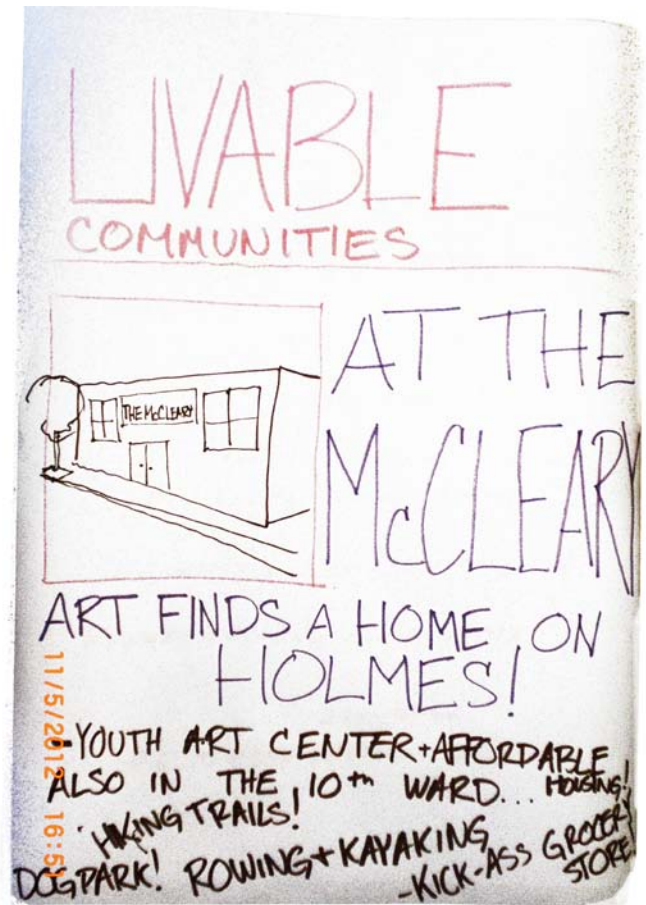 LIVABLE
COMMUNITIES
AT THE
McCLEARY
THE McCLEARY
ART FINDS A HOME ON
HOLMES!
- YOUTH ART CENTER + AFFORDABLE
HOUSING!
ALSO IN THE 10th WARD...
· HIKING TRAILS!
DOG PARK! ROWING + KAYAKING
- KICK-ASS GROCERY
STORE!
11/5/2012 16:51